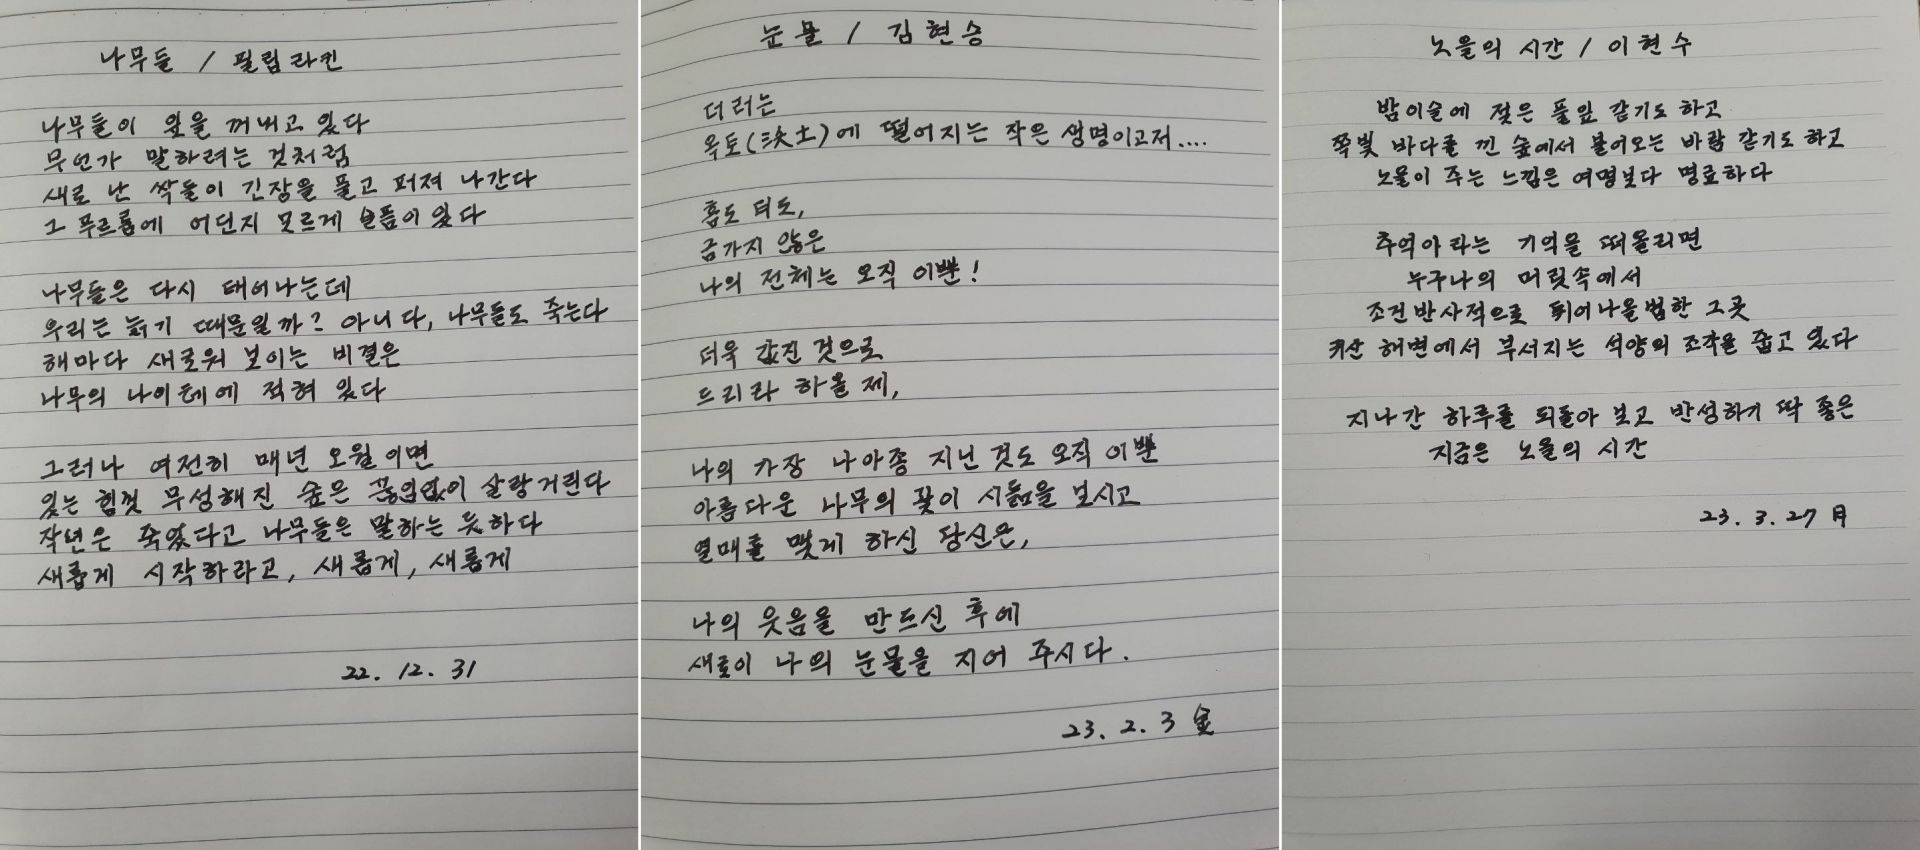 나무들 / 필립라킨
나무들이 잎을 꺼내고 있다
무언가 말하려는 것처럼
새로 난 싹들이 긴장을 풀고 퍼져 나간다
그 푸르름에 어딘지 모르게 슬픔이 있다
나무들은 다시 태어나는데
우리는 늙기 때문일까? 아니다, 나무들도 죽는다
해마다 새로워 보이는 비결은
나무의 나이테에 적혀 있다
그러나 여전히 매년 오월이면
있는 힘껏 무성해진 숲은 끊임없이 살랑거린다
작년은 죽었다고 나무들은 말하는 듯하다
새롭게 시작하라고, 새롭게, 새롭게
22. 12. 31
눈물 / 김현승
더러는
옥토(沃土)에 떨어지는 작은 생명이고저....
흠도 티도,
금가지 않은
나의 전체는 오직 이뿐!
더욱 값진 것으로
드리라 하올 제,
나의 가장 나아종 지닌 것도 오직 이뿐
아름다운 나무의 꽃이 시듦을 보시고
열매를 맺게 하신 당신은,
나의 웃음을 만드신 후에
새로이 나의 눈물을 지어 주시다.
23. 2. 3 金
노을의 시간 / 이현수
밤이슬에 젖은 풀잎 같기도 하고
쪽빛 바다를 낀 숲에서 불어오는 바람 같기도 하고
노을이 주는 느낌은 여명보다 명료하다
추억이라는 기억을 떠올리면
누구나의 머릿속에서
조건반사적으로 튀어나올법한 그곳
해변에서 부서지는 석양의 조각을 줍고 있다
지나간 하루를 되돌아 보고 반성하기 딱 좋은
지금은 노을의 시간
23. 3. 27 月